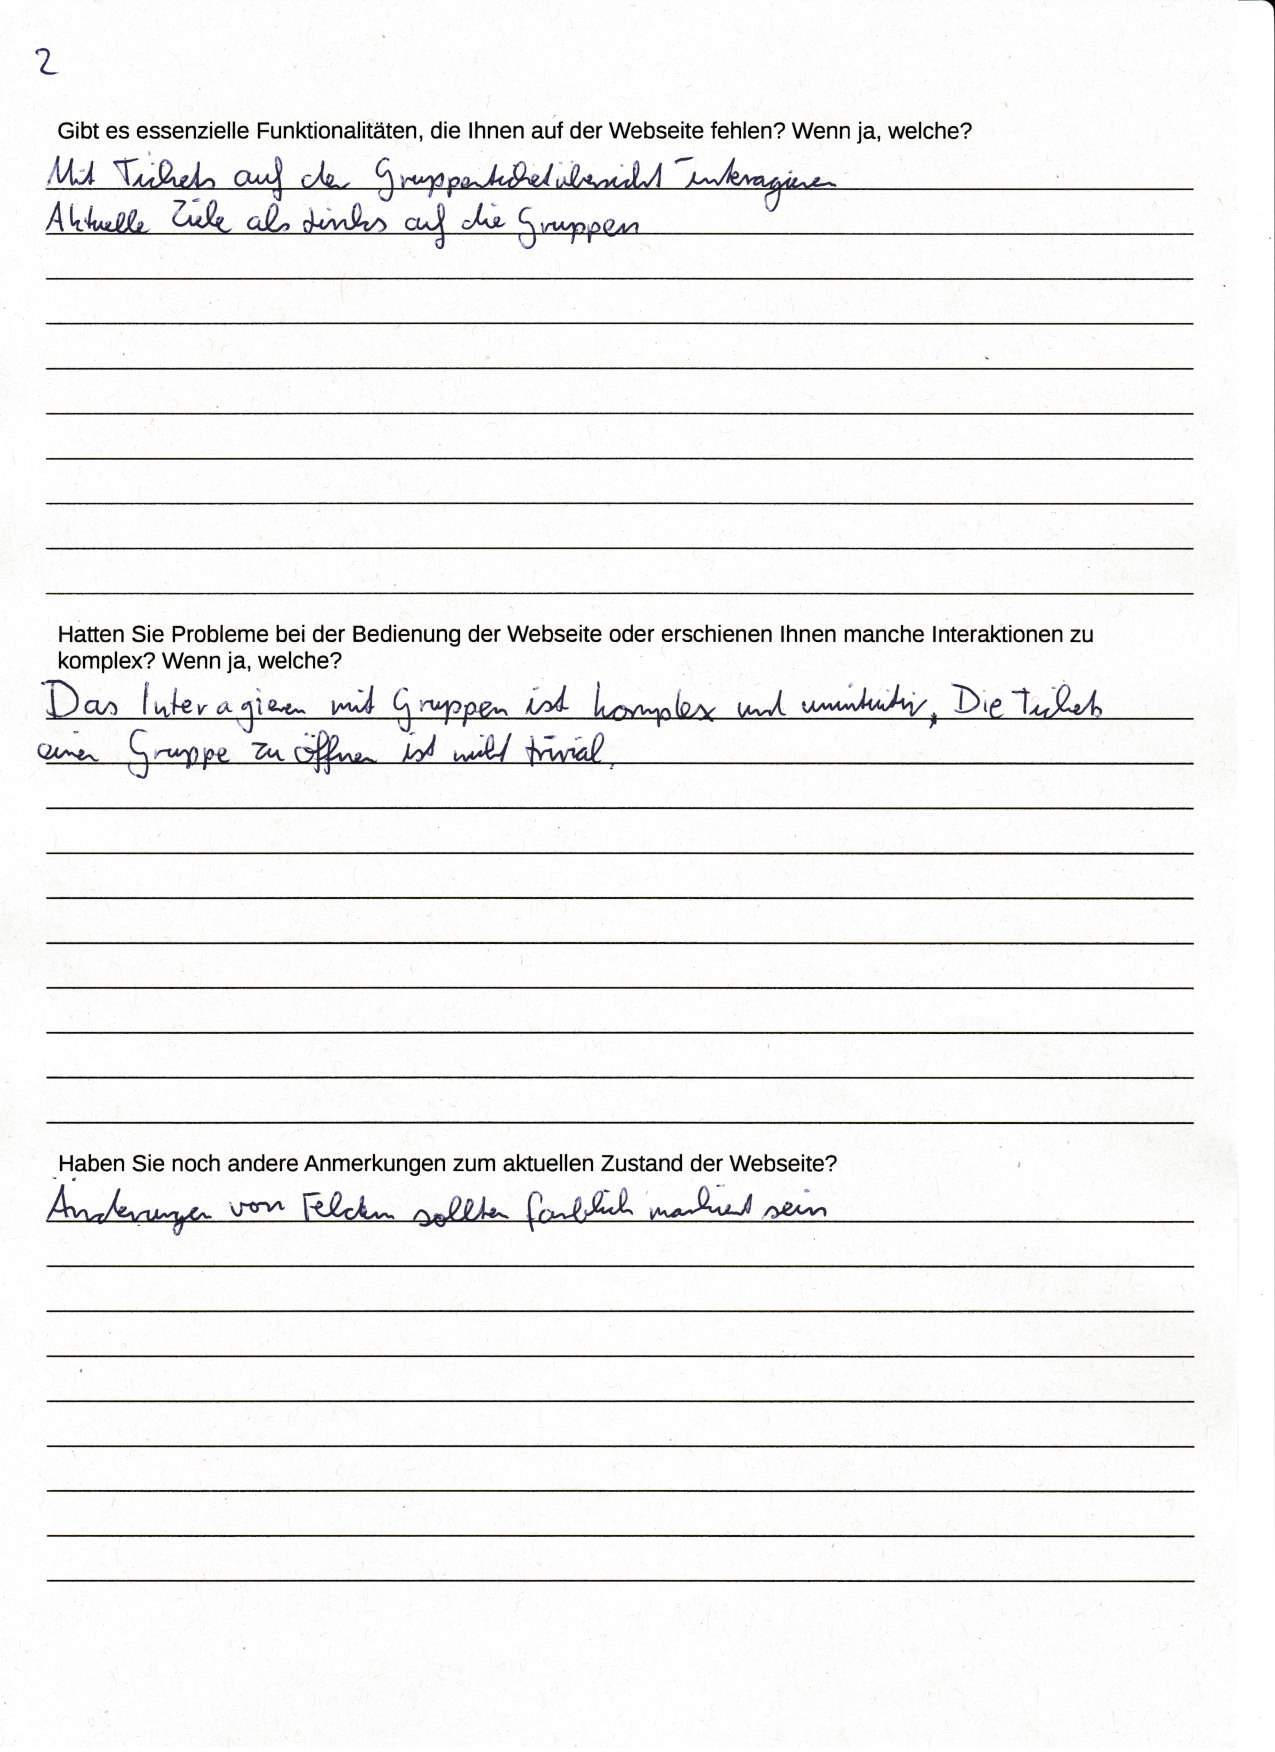 2
Gibt es essenzielle Funktionalitäten, die Ihnen auf der Webseite fehlen? Wenn ja, welche?
Mit Tickets auf der Gruppenticketübersicht interagieren
Aktuelle Ziele als Links auf die Gruppen
Hatten Sie Probleme bei der Bedienung der Webseite oder erschienen Ihnen manche Interaktionen zu
komplex? Wenn ja, welche?
Das Interagieren mit Gruppen ist komplex und unintuitiv, Die Tickets
einer Gruppe zu öffnen ist nicht trivial.
Haben Sie noch andere Anmerkungen zum aktuellen Zustand der Webseite?
Änderungen von Feldern sollten farblich markiert sein